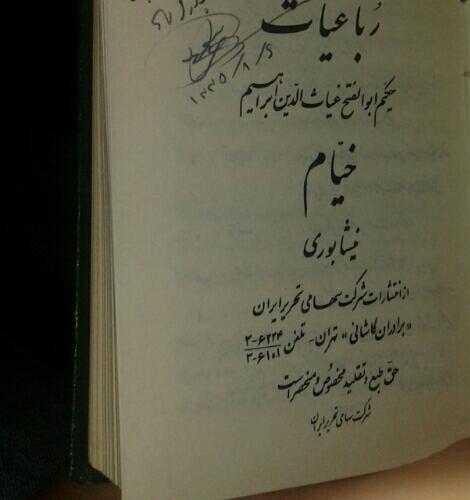 رباعیات
۱۳۳۵/۸/۶
حکیم ابوالفتح غیاث الدّین ابراهیم
خیّام
نیشابوری
از انتشارات شرکت سهامی تحریر ایران
«برادران کاشانی» تهران - تلفن ۶۲۲۴-۲
۶۱۰۱-۲
حق طبع و تقلید مخصوص و منحصر است
شرکت سهامی تحریر ایران